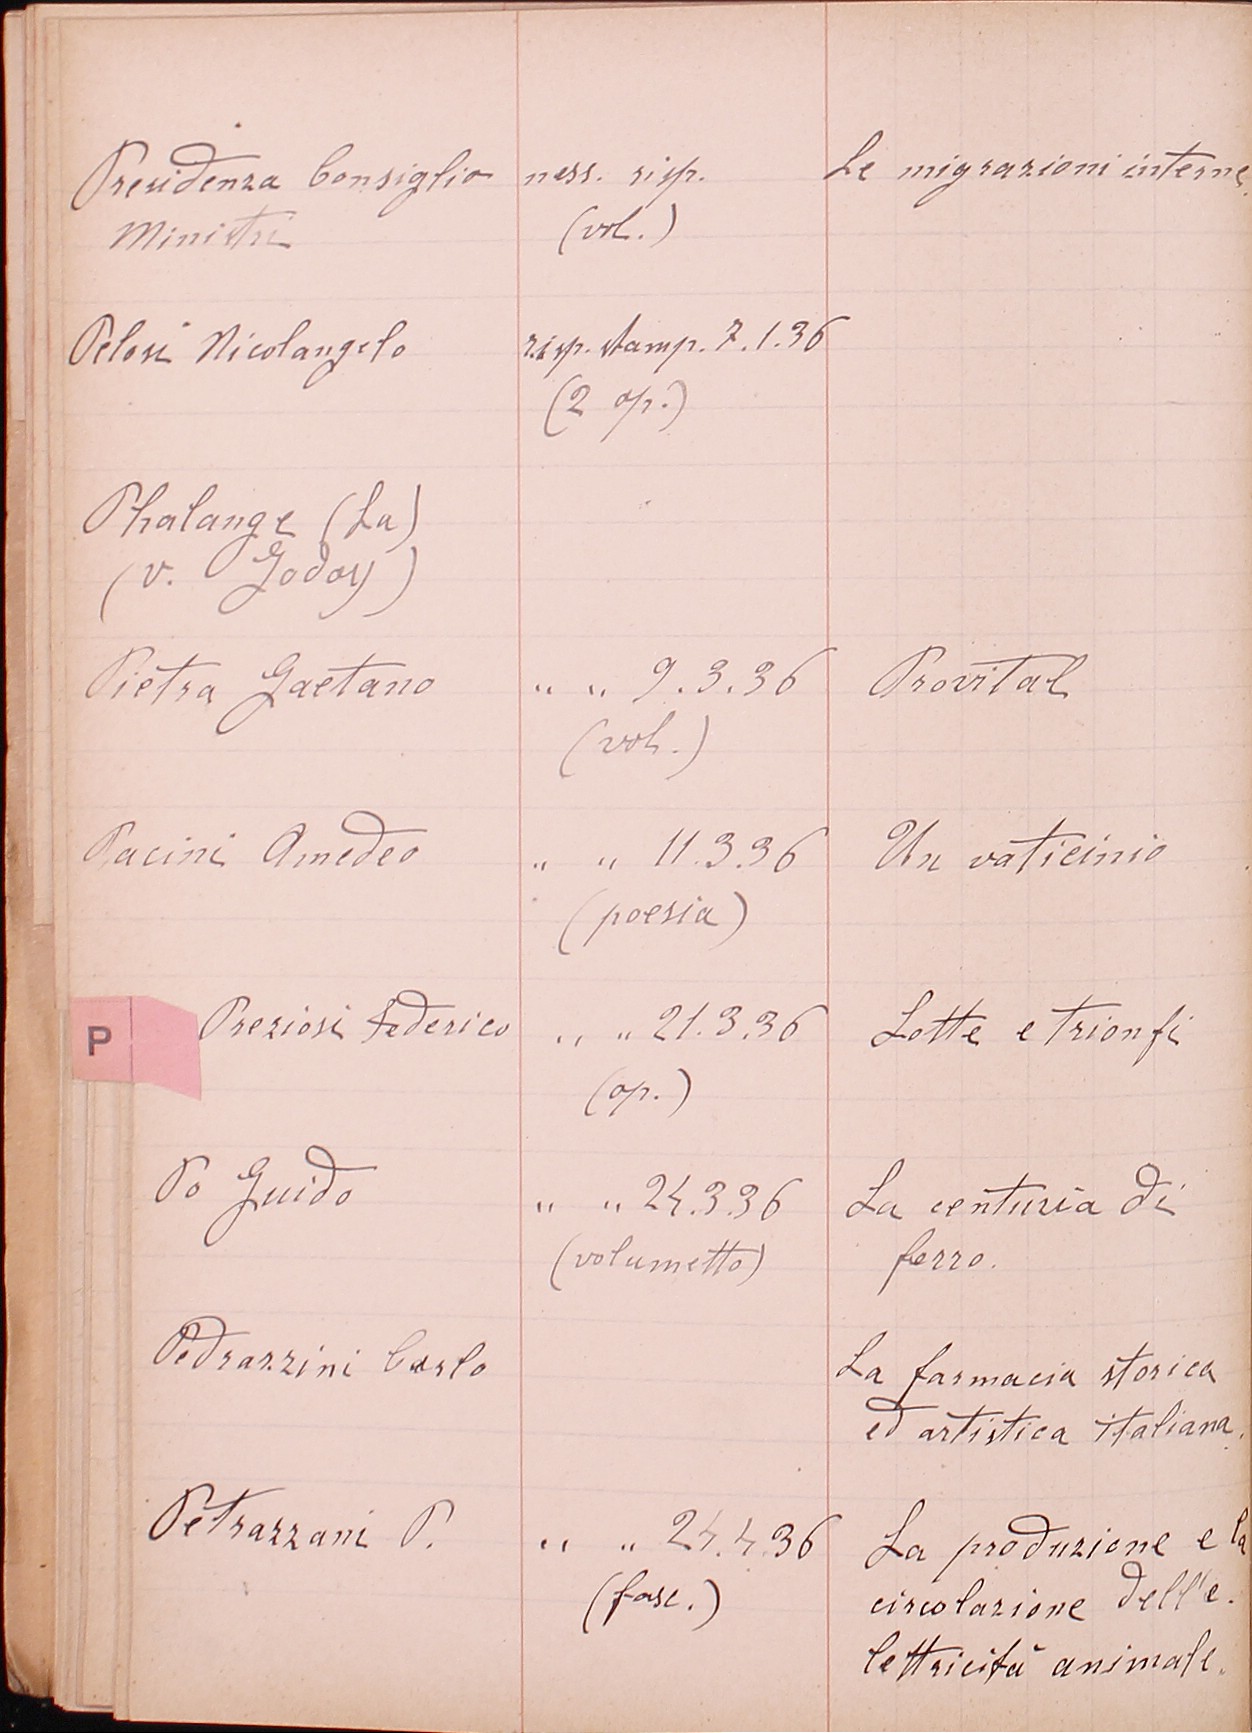 Presidenza Consiglio ness. risp. Le migrazioni interne
Ministri (vol.)
Pelosi Nicolangelo risp. stamp. 7.1.36
(2 op.)
Phalange (La)
(v. Godoy)
Pietra Gaetano " " 9.3.36 Provital
(vol.)
Pacini Amedeo " " 11.3.36 Un vaticinio
(poesia)
P Preziosi Federico " " 21.3.36 Lotte e trionfi
(op.)
Po Guido " " 24.3.36 La centuria di
(volumetto) ferro.
Pedrazzini Carlo La farmacia storica
ed artistica italiana.
Petrazzani P. " " 24.4.36 La produzione e la
(fasc.) circolazione dell'e.
lettricità animale.